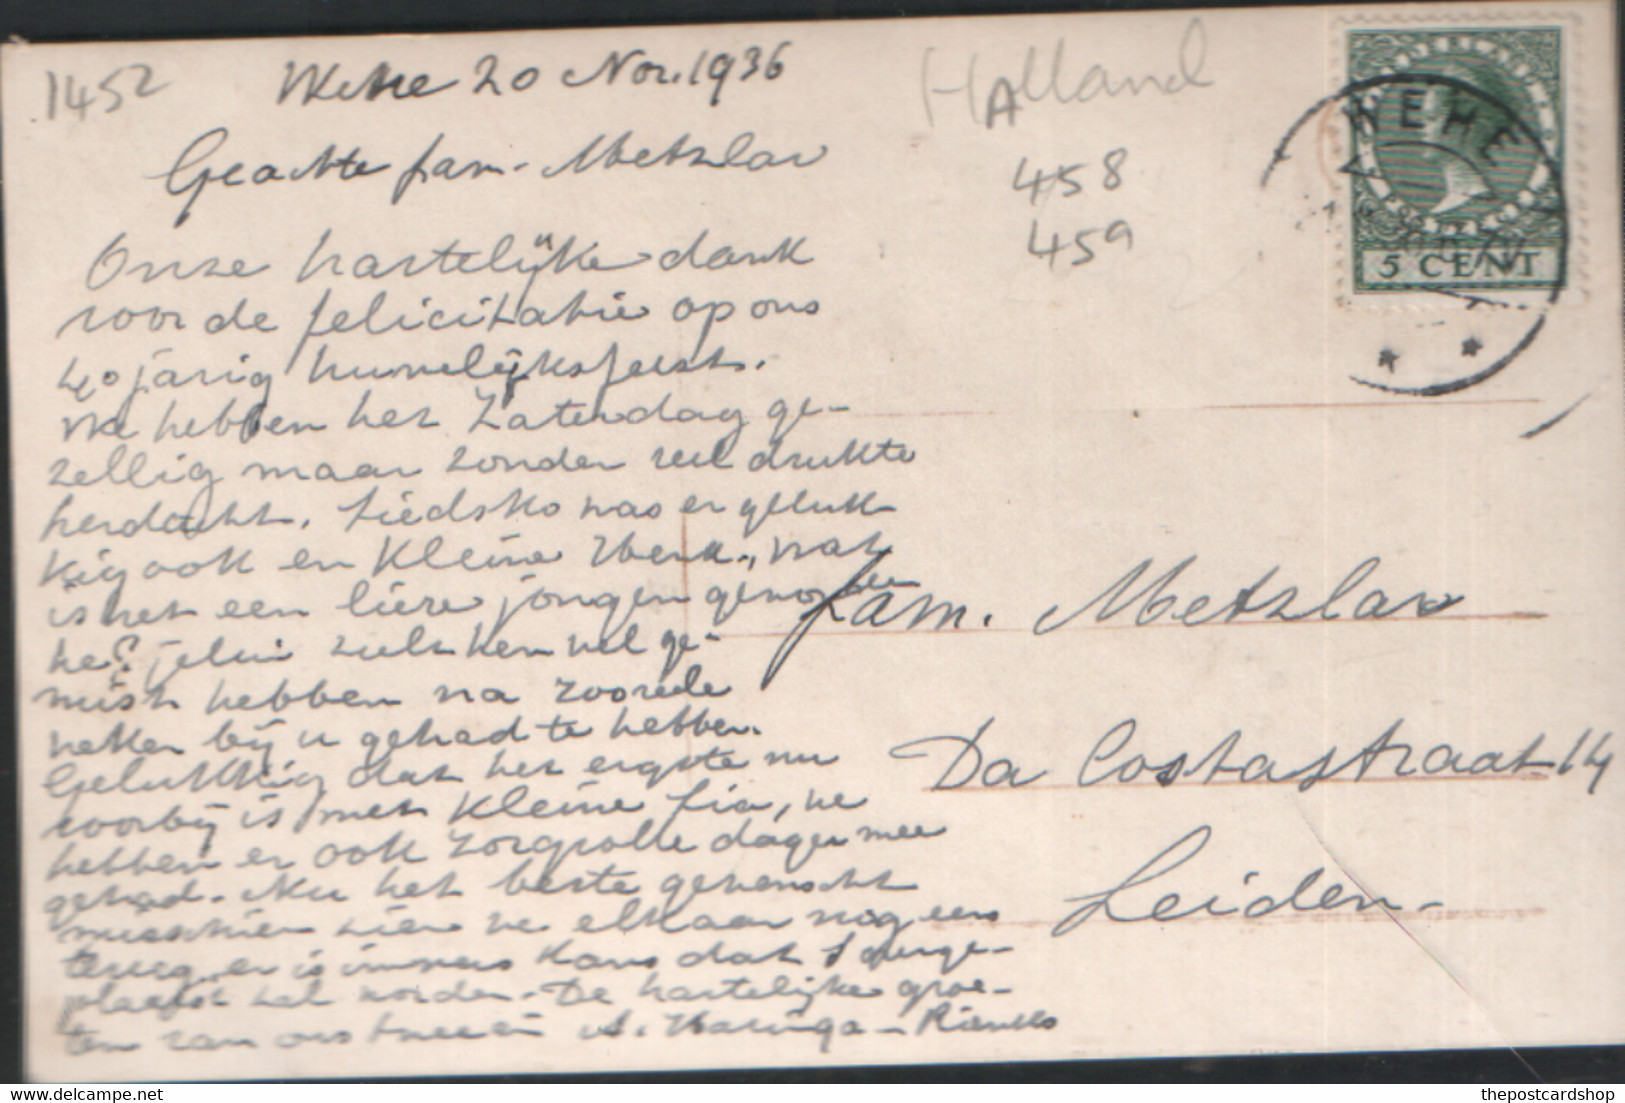 1452
Wehe 20 Nov. 1936
Holland
A
458
459
NEDERLAND
5 CENT
WEHE
Geachte fam. Metzlar
Onze hartelijke dank
voor de felicitatie op ons
40 jarig huwelijksfeest.
We hebben het Zaterdag ge-
zellig maar zonder veel drukte
herdacht. Liedsko was er geluk-
kig ook en kleine Henk., wat
is het een lieve jongen geworden
he? jelui zult hem wel ge-
mist hebben na zoovele
weken bij u gehad te hebben.
Gelukkig dat het ergste nu
voorbij is met kleine Lia, we
hebben er ook zorgvolle dagen mee
gehad. Nu het beste gewenscht
misschien zien we elkaar nog eens
terug, er is immers kans dat S
plaatst zal worden. De hartelijke groe-
ten van ons tweeën A. Wiersinga - Rienks
Fam. Metzlar
Da Costastraat 14
Leiden.
thepostcardshop